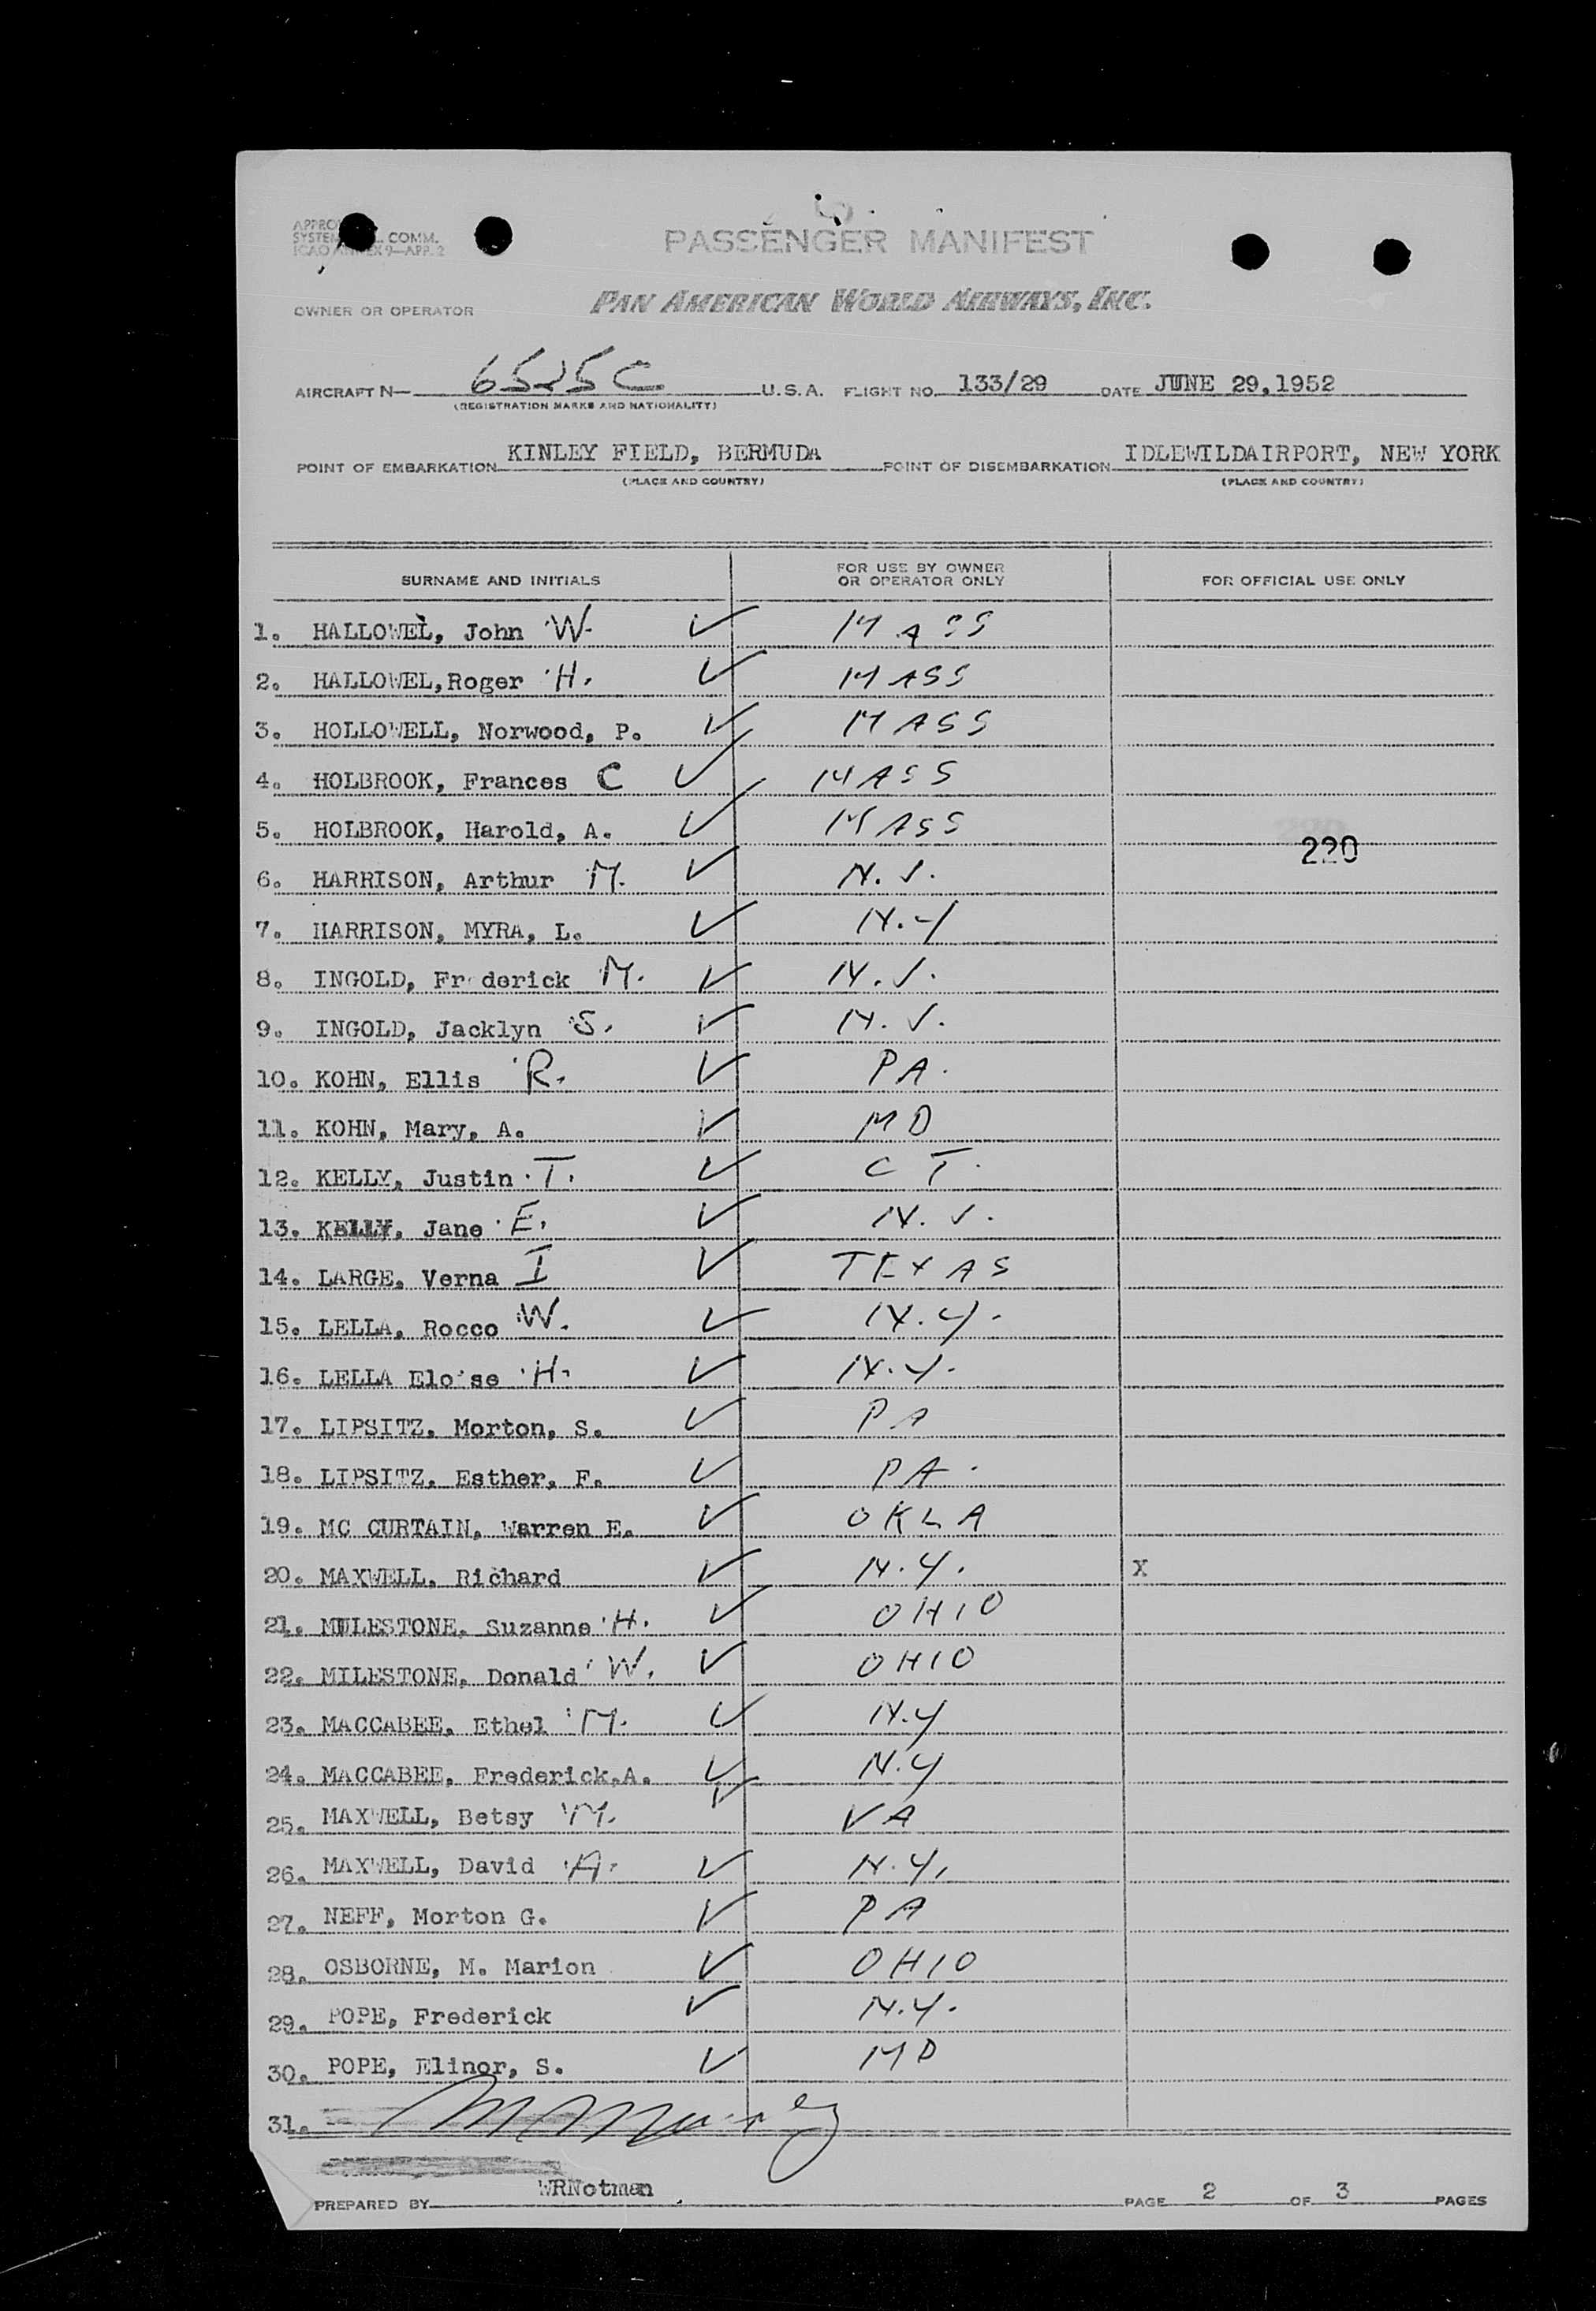 PASSENGER MANIFEST
COMM.
ICAO ANNEX 9—APP. 2
OWNER OR OPERATOR PAN AMERICAN WORLD AIRWAYS, INC.
AIRCRAFT N— 6525C U.S.A. FLIGHT NO. 133/29 DATE JUNE 29,1952
(REGISTRATION MARKS AND NATIONALITY)
POINT OF EMBARKATION KINLEY FIELD, BERMUDA POINT OF DISEMBARKATION IDLEWILDAIRPORT, NEW YORK
(PLACE AND COUNTRY) (PLACE AND COUNTRY)
SURNAME AND INITIALS FOR USE BY OWNER OR OPERATOR ONLY FOR OFFICIAL USE ONLY
1. HALLOWEL, John W. ✓ MASS
2. HALLOWEL,Roger H. ✓ MASS
3. HOLLOWELL, Norwood, P. ✓ MASS
4. HOLBROOK, Frances C ✓ MASS
5. HOLBROOK, Harold, A. ✓ MASS
220
6. HARRISON, Arthur M. ✓ N.J.
7. HARRISON, MYRA, L. ✓ N.Y
8. INGOLD, Fr derick M. ✓ N.J.
9. INGOLD, Jacklyn S. ✓ N.J.
10. KOHN, Ellis R. ✓ PA.
11. KOHN, Mary, A. ✓ MD
12. KELLY, Justin T. ✓ CT.
13. KELLY, Jane E. ✓ N.J.
14. LARGE, Verna I ✓ TEXAS
15. LELLA, Rocco W. ✓ N.Y.
16. LELLA Elo'se H. ✓ N.Y.
17. LIPSITZ, Morton, S. ✓ PA
18. LIPSITZ, Esther, F. ✓ PA.
19. MC CURTAIN, Warren E. ✓ OKLA
20. MAXWELL, Richard ✓ N.Y. X
21. MULESTONE, Suzanne H. ✓ OHIO
22. MILESTONE, Donald W. ✓ OHIO
23. MACCABEE, Ethel M. ✓ N.Y
24. MACCABEE, Frederick,A. ✓ N.Y
25. MAXWELL, Betsy M. ✓ VA
26. MAXWELL, David A. ✓ N.Y.
27. NEFF, Morton G. ✓ PA
28. OSBORNE, M. Marion ✓ OHIO
29. POPE, Frederick ✓ N.Y.
30. POPE, Elinor, S. ✓ MD
31.
PREPARED BY WRNotman PAGE 2 OF 3 PAGES